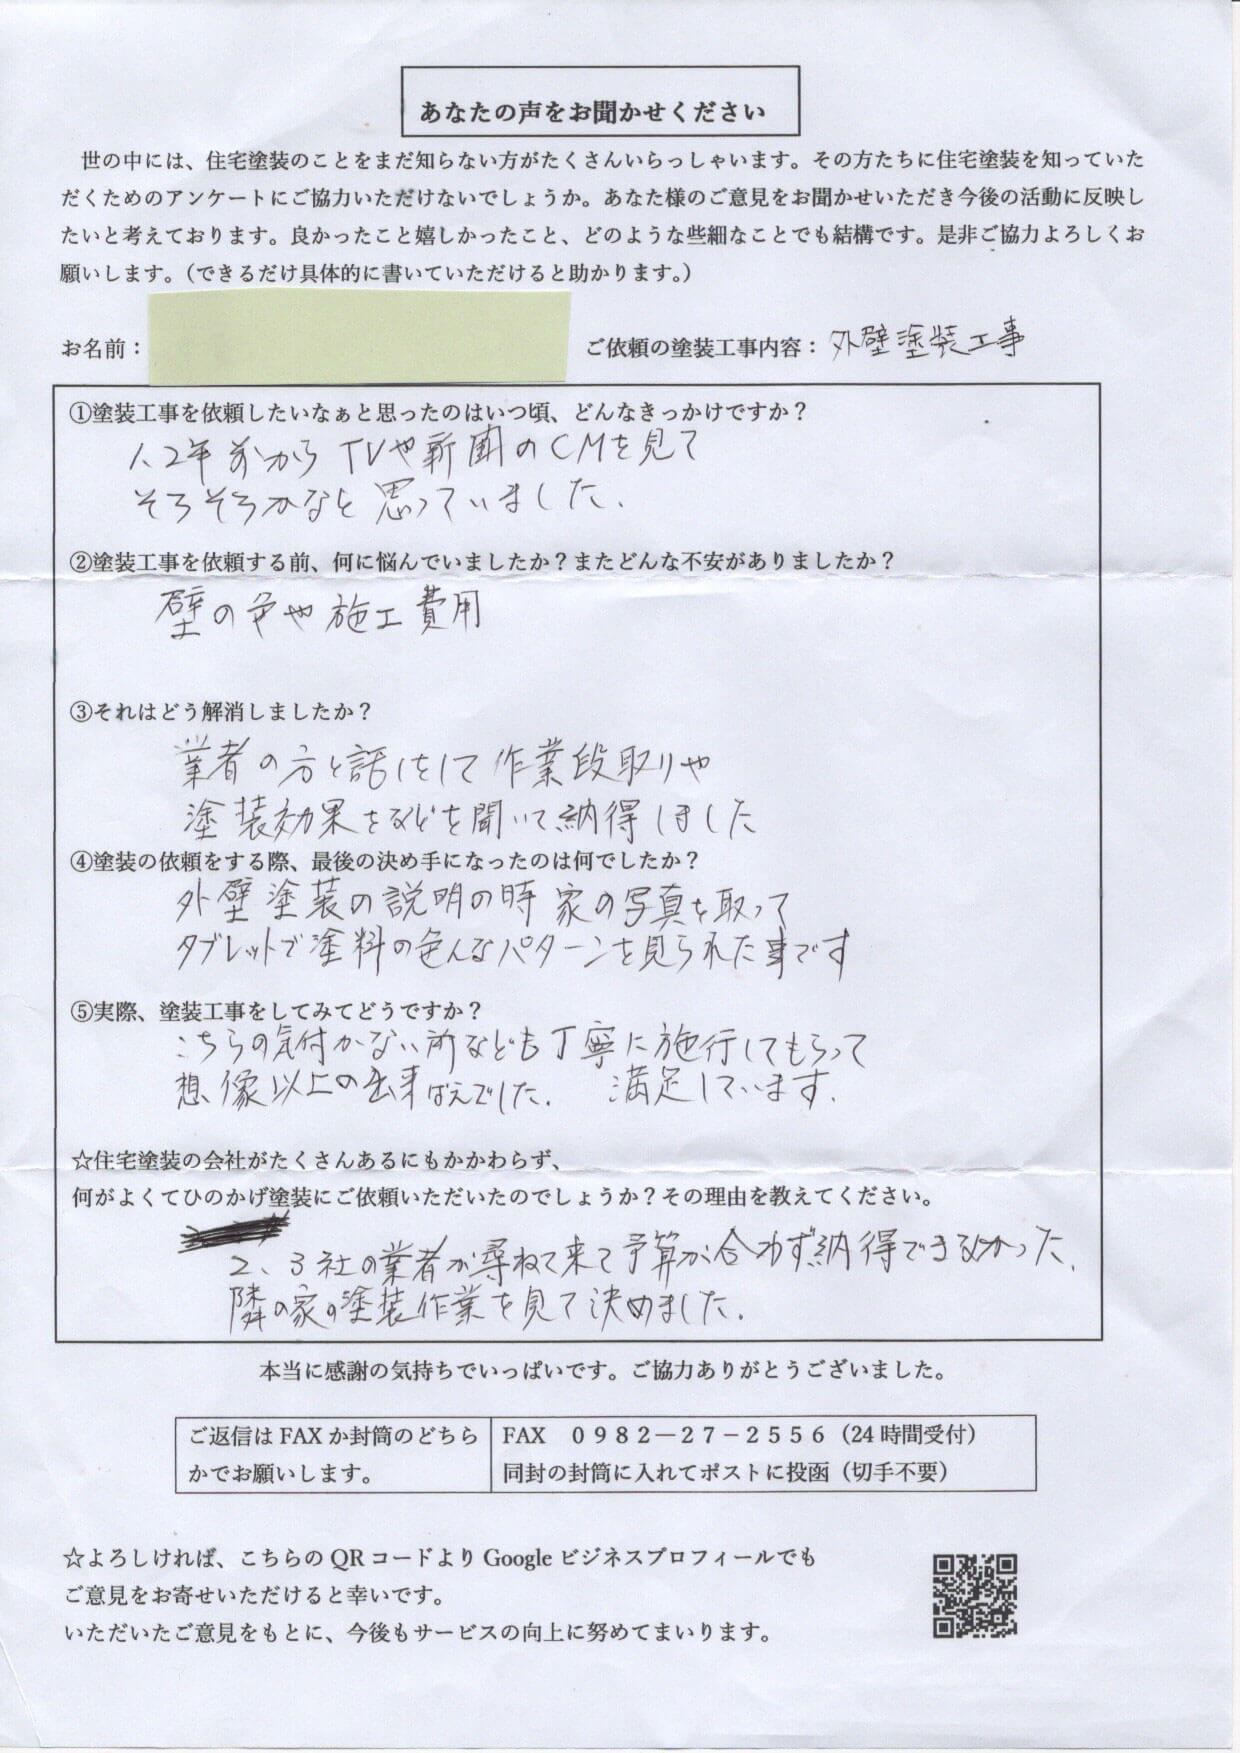 あなたの声をお聞かせください
世の中には、住宅塗装のことをまだ知らない方がたくさんいらっしゃいます。その方たちに住宅塗装を知っていた
だくためのアンケートにご協力いただけないでしょうか。あなた様のご意見をお聞かせいただき今後の活動に反映し
たいと考えております。良かったこと嬉しかったこと、どのような些細なことでも結構です。是非ご協力よろしくお
願いします。（できるだけ具体的に書いていただけると助かります。）
お名前： ご依頼の塗装工事内容：外壁塗装工事
①塗装工事を依頼したいなぁと思ったのはいつ頃、どんなきっかけですか？
1、2年前から TVや新聞のCMを見て
そろそろかなと思っていました.
②塗装工事を依頼する前、何に悩んでいましたか？またどんな不安がありましたか？
壁の色や施工費用
③それはどう解消しましたか？
業者の方と話しをして作業段取りや
塗装効果をなどを聞いて納得しました
④塗装の依頼をする際、最後の決め手になったのは何でしたか？
外壁塗装の説明の時 家の写真を取って
タブレットで塗料の色んなパターンを見られた事です
⑤実際、塗装工事をしてみてどうですか？
こちらの気付かない所なども丁寧に施行してもらって
想像以上の出来ばえでした. 満足しています.
☆住宅塗装の会社がたくさんあるにもかかわらず、
何がよくてひのかげ塗装にご依頼いただいたのでしょうか？その理由を教えてください。
2、3社の業者が尋ねて来て予算が合わず納得できなかった.
隣の家の塗装作業を見て決めました.
本当に感謝の気持ちでいっぱいです。ご協力ありがとうございました。
ご返信は FAX か封筒のどちら
かでお願いします。
FAX　０９８２－２７－２５５６（24 時間受付）
同封の封筒に入れてポストに投函（切手不要）
☆よろしければ、こちらの QR コードより Google ビジネスプロフィールでも
ご意見をお寄せいただけると幸いです。
いただいたご意見をもとに、今後もサービスの向上に努めてまいります。